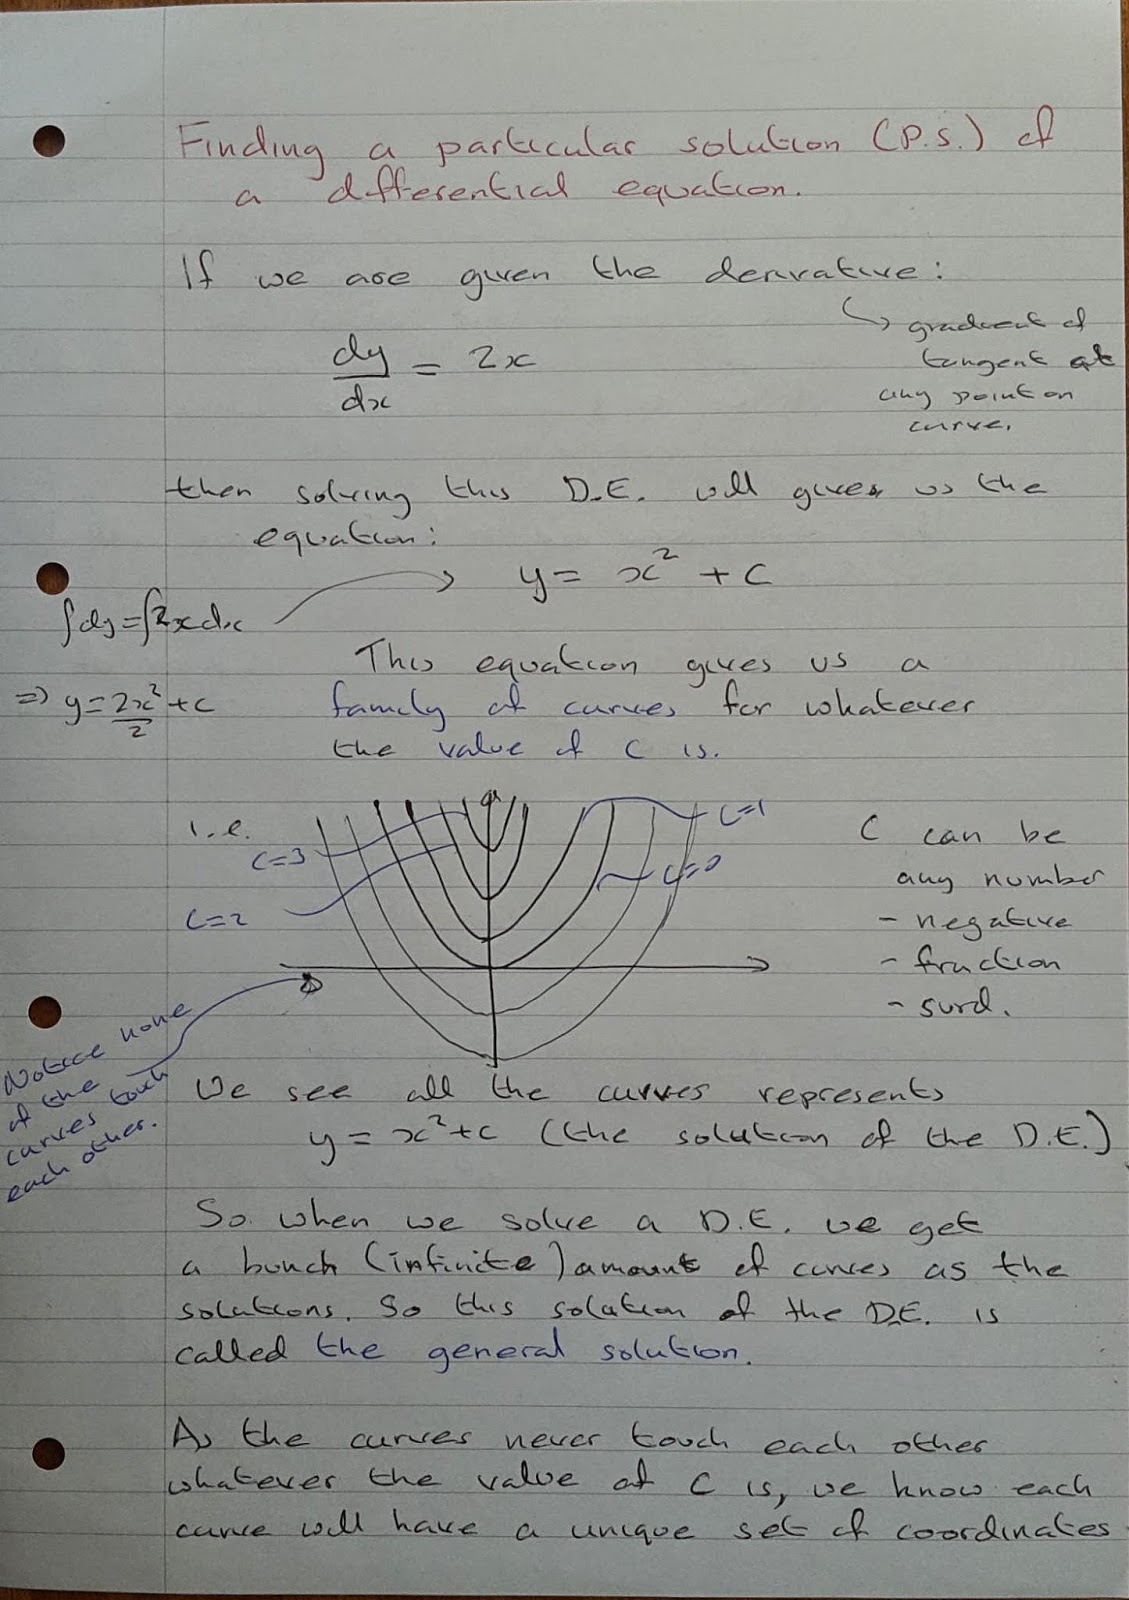 Finding a particular solution (P.S.) of
a differential equation.
If we are given the derivative:
↳ gradient of
tangent at
any point on
curve.
dy/dx = 2x
then solving this D.E. will gives us the
equation:
y = x² + c
∫dy = ∫2x dx
⇒ y = 2x²/2 + c
This equation gives us a
family of curves for whatever
the value of C is.
i.e.
C=3
C=2
C=1
C=0
C can be
any number
- negative
- fraction
- surd.
Notice none
of the
curves touch
each other.
We see all the curves represents
y = x² + c (the solution of the D.E.)
So when we solve a D.E. we get
a bunch (infinite) amount of curves as the
solutions. So this solution of the D.E. is
called the general solution.
As the curves never touch each other
whatever the value of C is, we know each
curve will have a unique set of coordinates